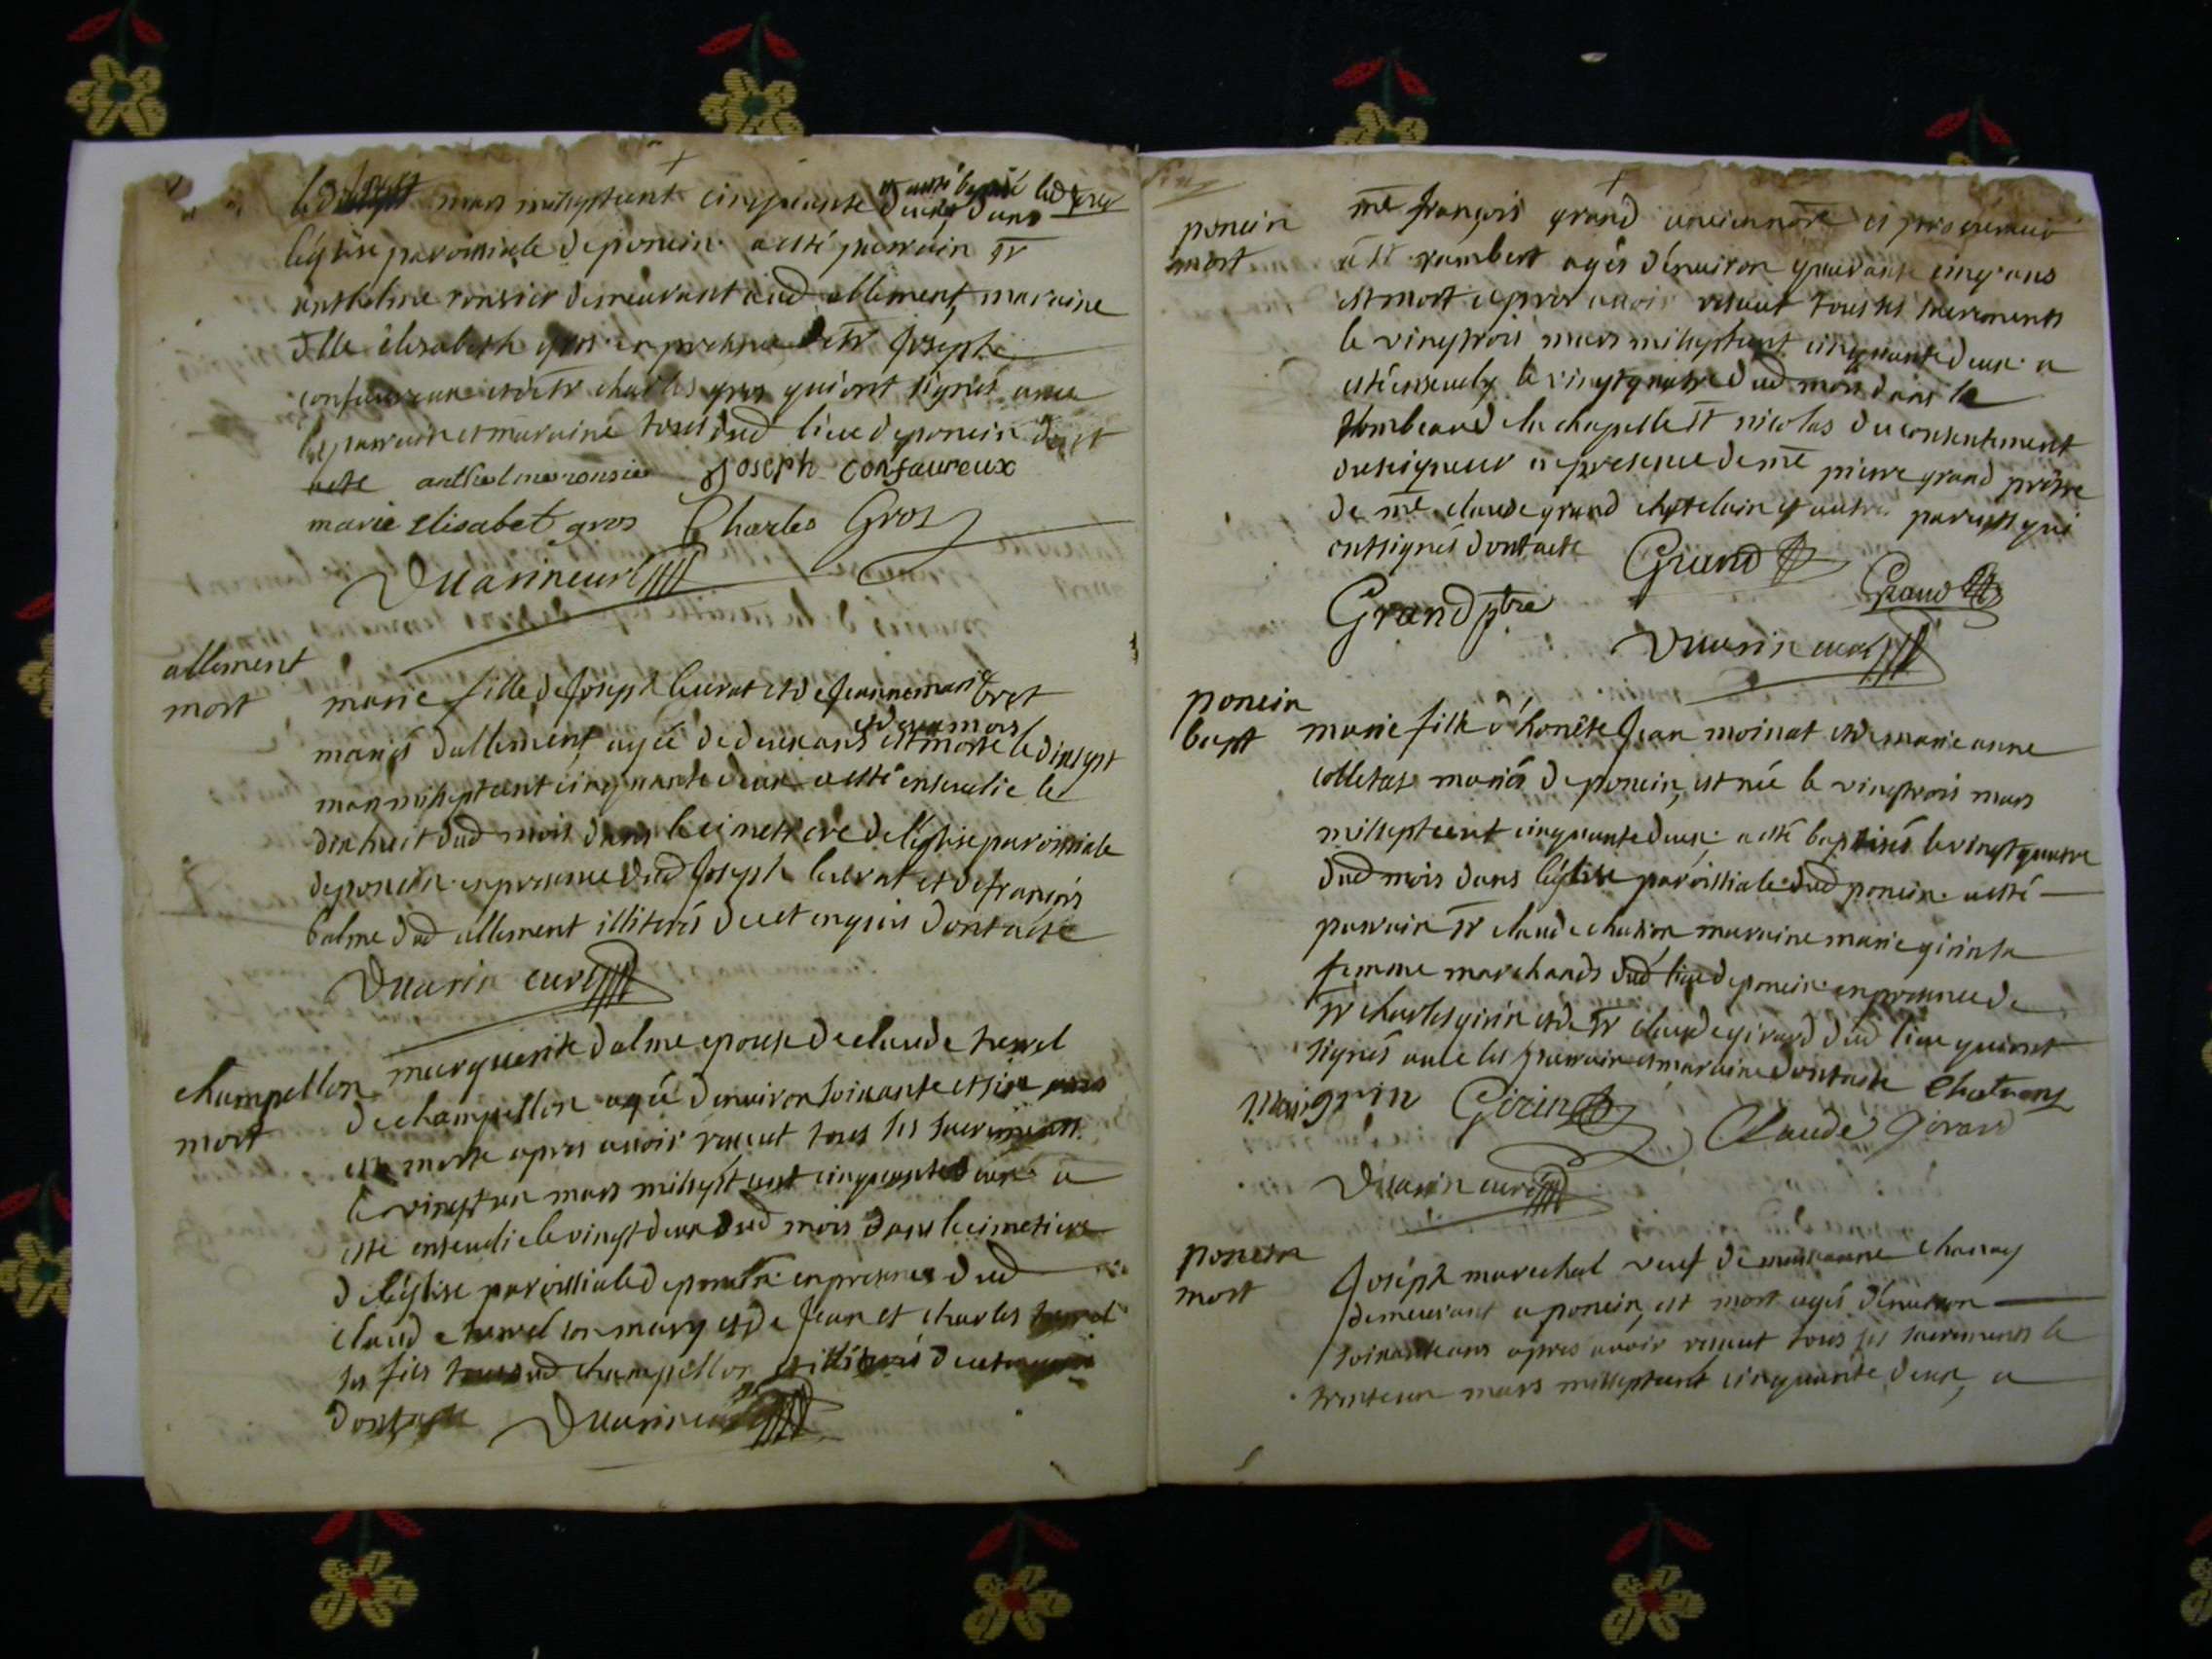 mars milseptcent cinquante deux dans
a esté baptisé led jour
léglise paroissiale de poncin a esté parrain sr
anthelme ronsier demeurant aud allement, maraine
dlle elisabeth gros en presence de sr Joseph
confaureux et de sr charles gros qui ont signés avec
les parrain et maraine tous dud lieu de poncin dont
acte anthelme ronsier Joseph confaureux
marie elisabet gros Charles Gros
Vuarin curé
allement
mort
marie fille de Joseph leurat et de Jeanne marie bret
mariés dallement, agée de deux ans est morte le dixsept
et deux mois
mars milseptcent cinquante deux a esté ensevelie le
dixhuit dud mois dans le cimetiere de léglise paroissiale
de poncin en presence dud Joseph leurat et de françois
balme dud allement illiterés de ce enquis dont acte
Vuarin curé
champellon
mort
marguerite dalme epouse de claude
de champellon agée denviron soixante et six ans
est morte apres avoir receut tous les sacrements
le vingt un mars milsept cent cinquante deux a
esté ensevelie le vingt deux dud mois dans le cimetiere
de léglise paroissiale de poncin en presence dud
claude son mary et de Jean et charles
ses fils tous dud champellon illiterés de ce enquis
dont acte Vuarin curé
poncin
mort
me françois grand ancien nore et procureur
à st rambert agés denviron quarante cinq ans
est mort apres avoir receut tous les sacrements
le vingt trois mars milseptcent cinquante deux a
esté ensevely le vingt quatre dud mois dans le
tombeau de la chapelle st nicolas du consentement
du seigneur en presence de me pierre grand prêtre
de me claude grand chatelain et autres parents qui
ont signés dont acte Grand
Grand ptre Grand
Vuarin curé
poncin
bapt
marie fille d'honête Jean moinat et de marie anne
colletas mariés de poncin, est née le vingt trois mars
milseptcent cinquante deux a esté baptisée le vingt quatre
dud mois dans léglise paroissiale dud poncin a esté
parrain sr claude chatron maraine marie girin sa
femme marchands dud lieu de poncin en presence de
sr charles girin et de sr claude girard dud lieu qui ont
signés avec les parrain et maraine dont acte Chatron
Girin Claude Girard
Vuarin curé
poncin
mort
Joseph marechal veuf de marie anne chanay
demeurant a poncin, est mort agés denviron
soixante ans apres avoir receut tous les sacrements le
trente un mars milseptcent cinquante deux, a